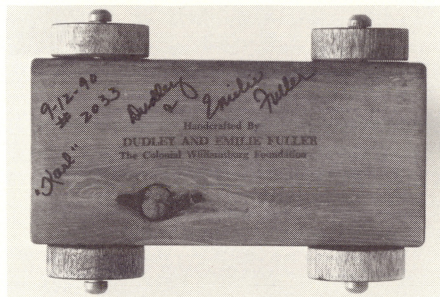 9-12-90
2033
Dudley
&
Emilie
Fuller
Handcrafted By
DUDLEY AND EMILIE FULLER
The Colonial Williamsburg Foundation
"Karl"